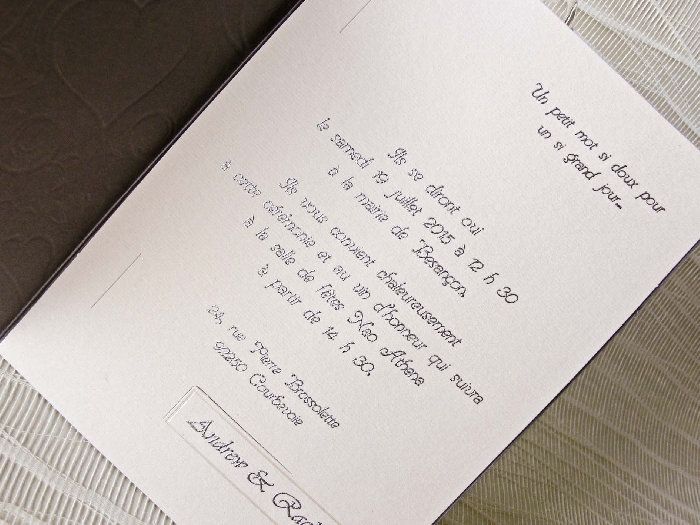 Un petit mot si doux pour
un si grand jour...
Ils se diront oui
le samedi 19 juillet 2015 à 12 h 30
à la mairie de Besançon,
Ils vous convient chaleureusement
à cette cérémonie et au vin d'honneur qui suivra
à la salle de fêtes Neo Athena
à partir de 14 h 30.
24, rue Pierre Brossolette
92250 Courbevoie
Andrew &